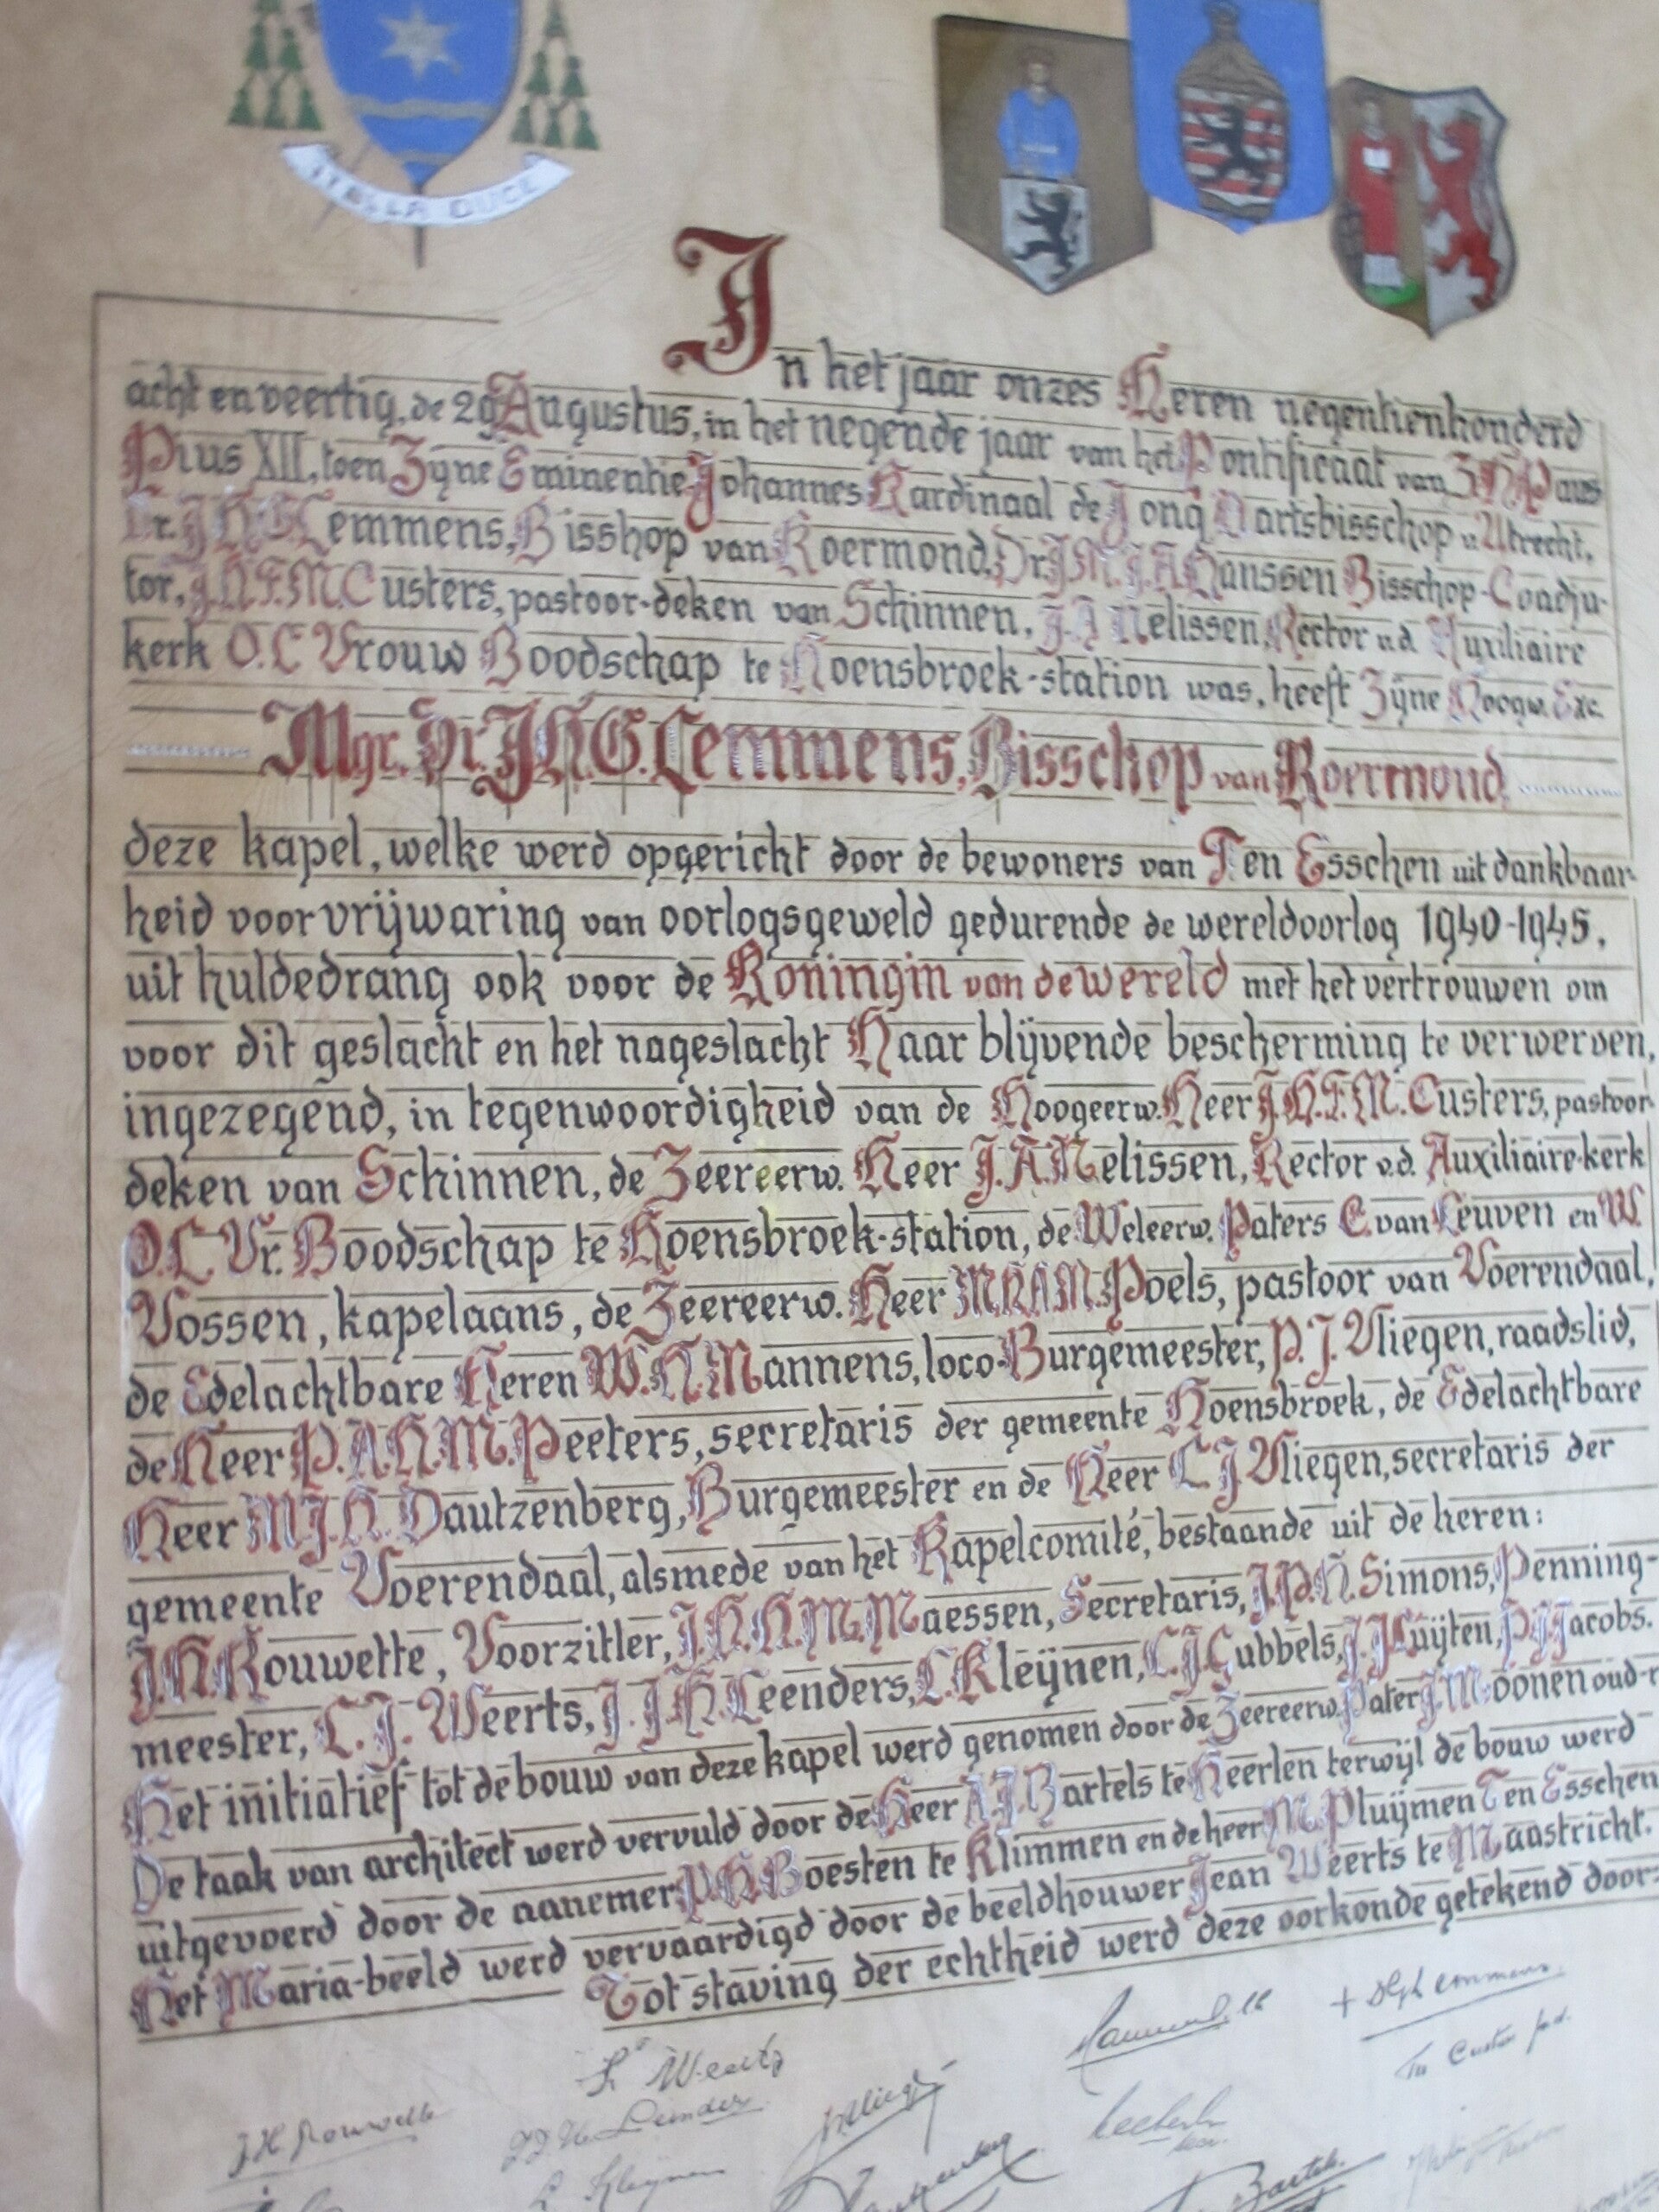 STELLA DUCE
In het jaar onzes Heren negentienhonderd
acht en veertig, de 29 Augustus, in het negende jaar van het Pontificaat van Z.H. Paus
Pius XII, toen Zyne Eminentie Johannes Kardinaal de Jong Aartsbisschop v. Utrecht,
Dr. J.H.G. Lemmens, Bisshop van Roermond, Dr. J.M.J.A. Hanssen Bisschop-Coadju-
tor, J.H.F.M. Custers, pastoor-deken van Schinnen, J.A. Nelissen, Rector v.d. Auxiliaire
kerk O.L. Vrouw Boodschap te Hoensbroek-station was, heeft Zyne Hoogw. Exc.
Mgr. Dr. J.H.G. Lemmens, Bisschop van Roermond,
deze kapel, welke werd opgericht door de bewoners van Ten Esschen uit dankbaar-
heid voor vrijwaring van oorlogsgeweld gedurende de wereldoorlog 1940-1945,
uit huldedrang ook voor de Koningin van de wereld met het vertrouwen om
voor dit geslacht en het nageslacht Haar blijvende bescherming te verwerven,
ingezegend, in tegenwoordigheid van de Hoogeerw. Heer J.H.F.M. Custers, pastoor-
deken van Schinnen, de Zeereerw. Heer J.A. Nelissen, Rector v.d. Auxiliaire-kerk
O.L. Vr. Boodschap te Hoensbroek-station, de Weleerw. Paters E. van Leuven en W.
Vossen, kapelaans, de Zeereerw. Heer M.H.A.M. Poels, pastoor van Voerendaal,
de Edelachtbare Heren W.H. Mannens, loco-Burgemeester, P.J. Vliegen, raadslid,
de Heer P.A.H.M. Peeters, secretaris der gemeente Hoensbroek, de Edelachtbare
Heer M.J.H. Dautzenberg, Burgemeester en de Heer L.J. Vliegen, secretaris der
gemeente Voerendaal, alsmede van het Kapelcomité, bestaande uit de heren:
J.H. Rouwette, Voorzitter, J.H.H.M. Maessen, Secretaris, J.P.H. Simons, Penning-
meester, L.J. Weerts, J.J.H. Leenders, L. Kleijnen, L.J. Lubbels, J.J. Luijten, P.J. Jacobs.
Het initiatief tot de bouw van deze kapel werd genomen door de Zeereerw. Pater J. Moonen oud-r
De taak van architect werd vervuld door de Heer A.J. Bartels te Heerlen terwijl de bouw werd
uitgevoerd door de aanemer P.H. Boesten te Klimmen en de heer M. Pluijmen Ten Esschen
Het Maria-beeld werd vervaardigd door de beeldhouwer Jean Weerts te Maastricht.
Tot staving der echtheid werd deze oorkonde getekend door:
L Weerts
J H Rouwette
J J H Leenders
L Kleijnen